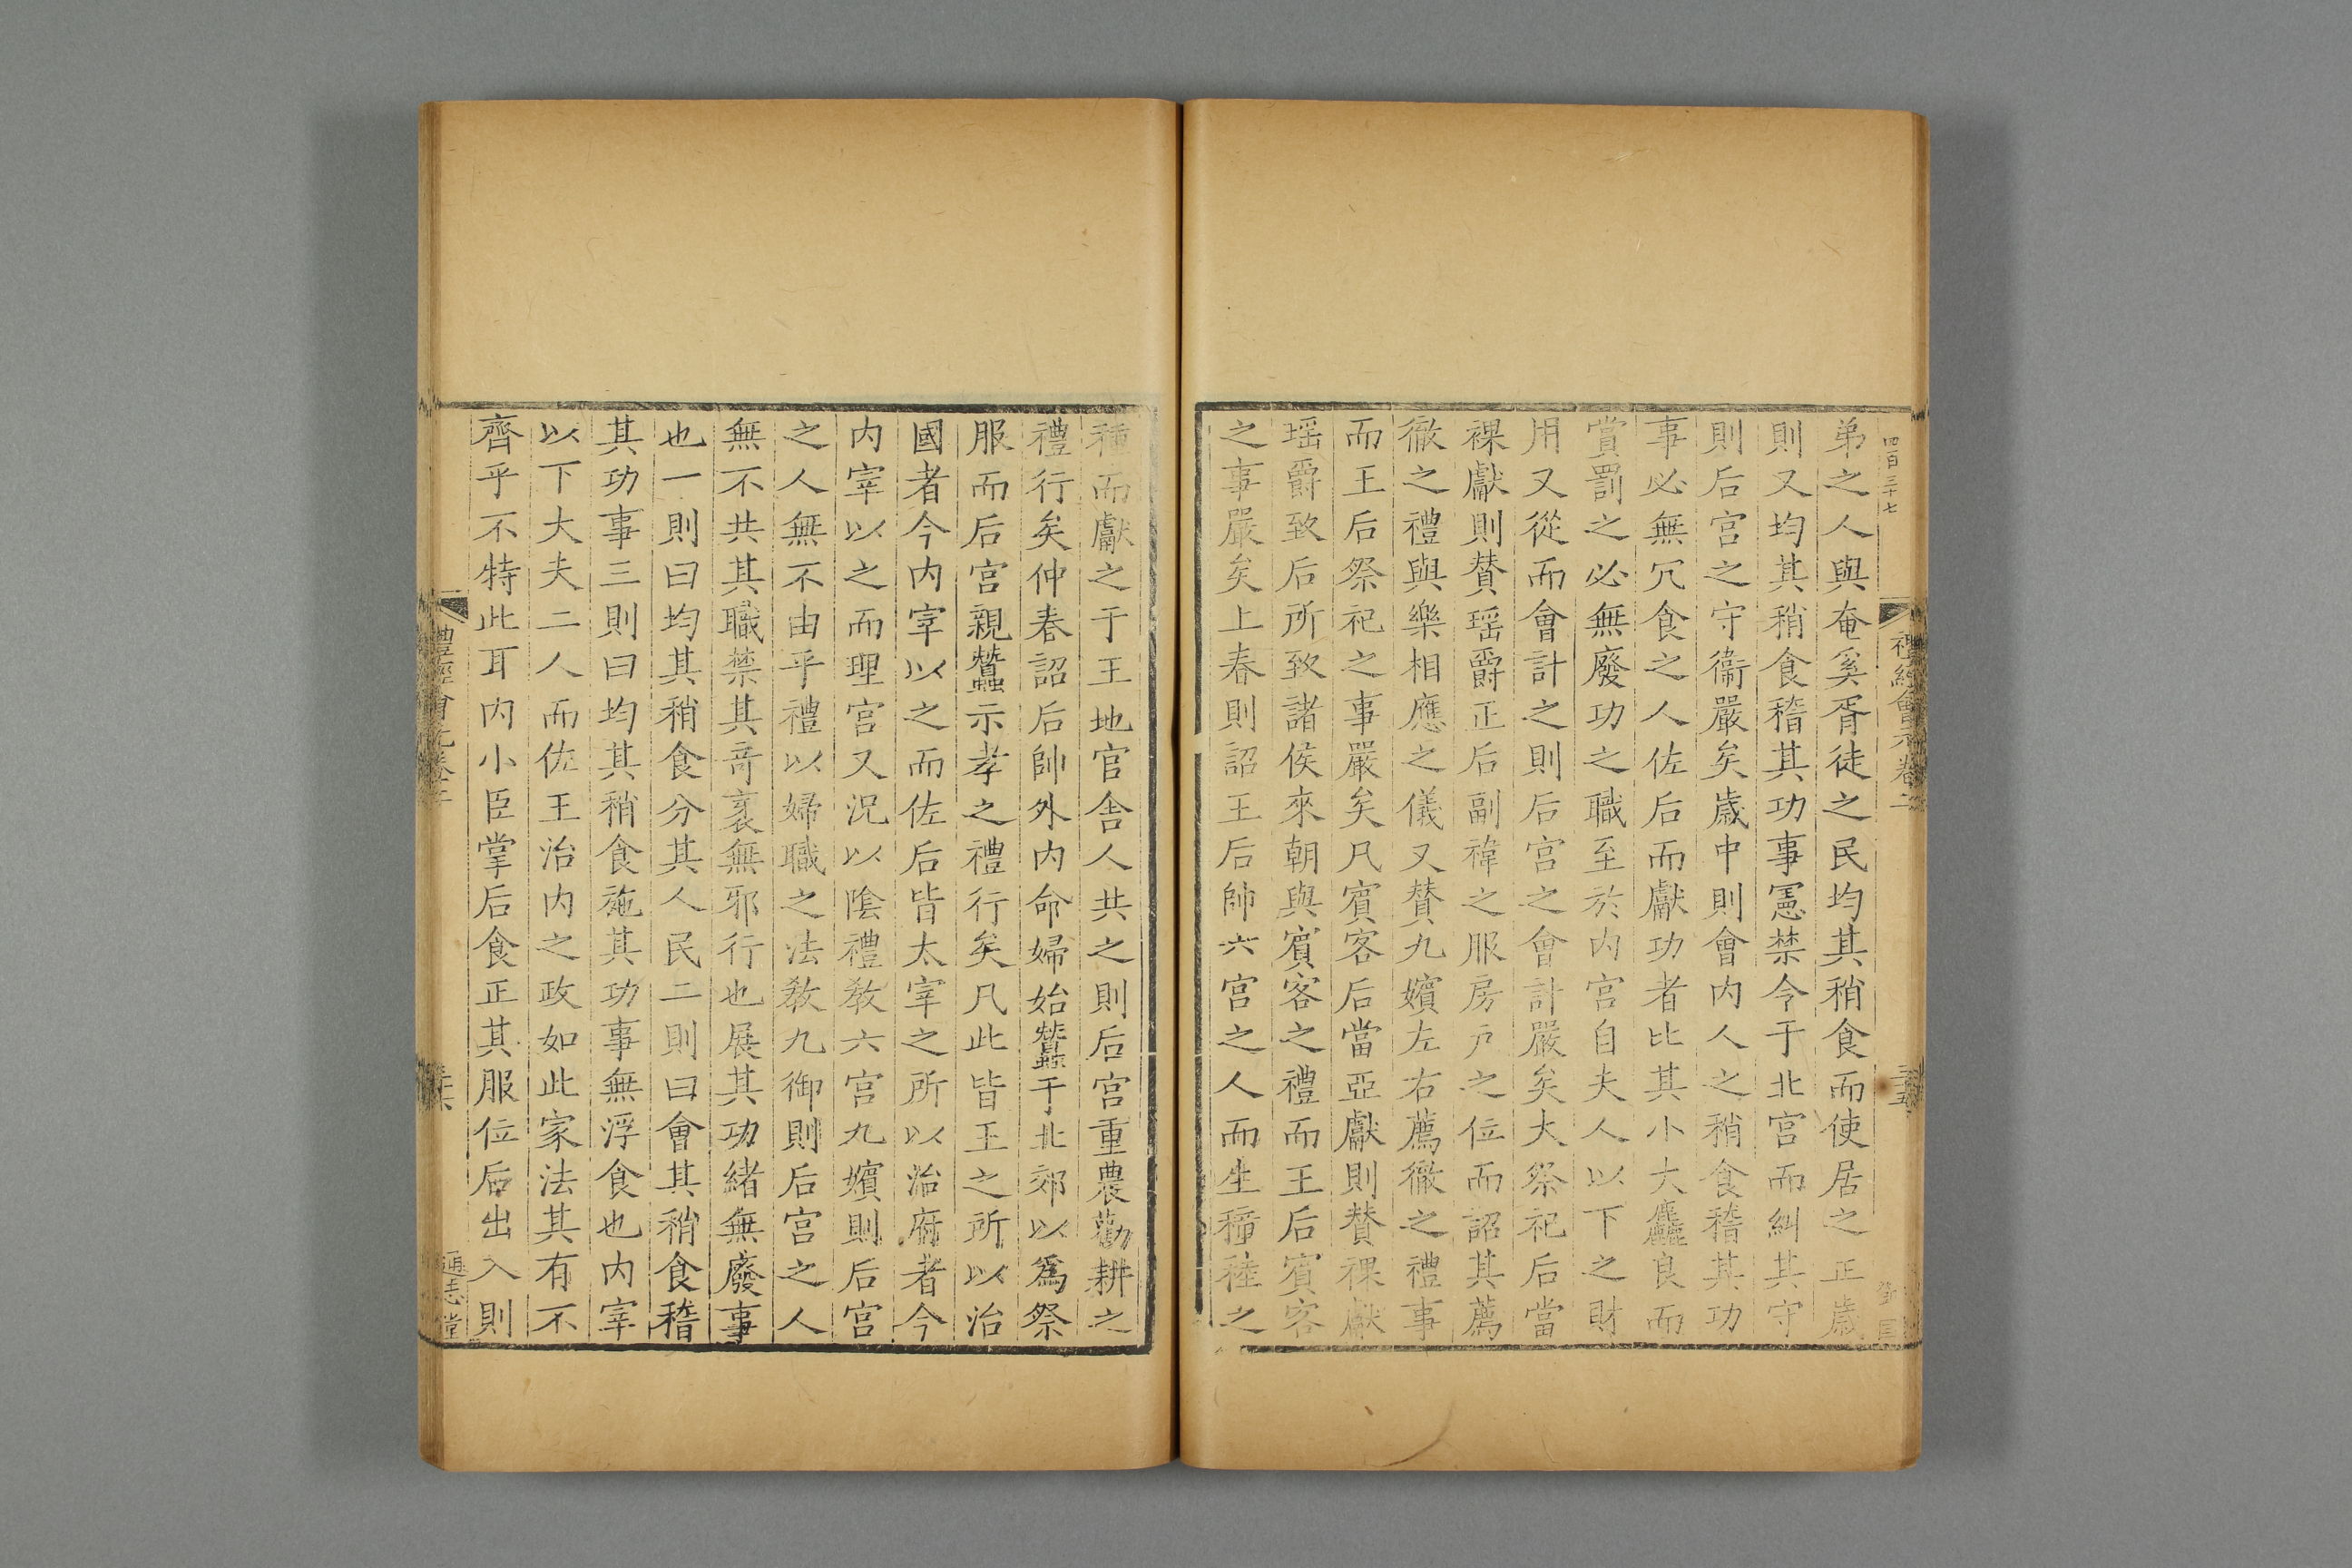 四百三十七
禮經會元卷二
弟之人與奄奚胥徒之民均其稍食而使居之正歲
則又均其稍食稽其功事憲禁令于北宮而糾其守
則后宮之守衞嚴矣歲中則會內人之稍食稽其功
事必無冗食之人佐后而獻功者比其小大麤良而
賞罰之必無廢功之職至於內宮自夫人以下之財
用又從而會計之則后宮之會計嚴矣大祭祀后當
祼獻則賛瑶爵正后副褘之服房戶之位而詔其薦
徹之禮與樂相應之儀又賛九嬪左右薦徹之禮事
而王后祭祀之事嚴矣凡賓客后當亞獻則賛祼獻
瑶爵致后所致諸侯來朝與賓客之禮而王后賓客
之事嚴矣上春則詔王后帥六宮之人而生穜稑之
種而獻之于王地官舎人共之則后宮重農勸耕之
禮行矣仲春詔后帥外內命婦始蠶于北郊以爲祭
服而后宮親蠶示孝之禮行矣凡此皆王之所以治
國者今內宰以之而佐后皆太宰之所以治府者今
內宰以之而理宮又況以陰禮敎六宮九嬪則后宮
之人無不由乎禮以婦職之法敎九御則后宮之人
無不共其職禁其竒衺無邪行也展其功緒無廢事
也一則曰均其稍食分其人民二則曰會其稍食稽
其功事三則曰均其稍食施其功事無浮食也內宰
以下大夫二人而佐王治內之政如此家法其有不
齊乎不特此耳內小臣掌后食正其服位后出入則
禮經會元卷二
通志堂